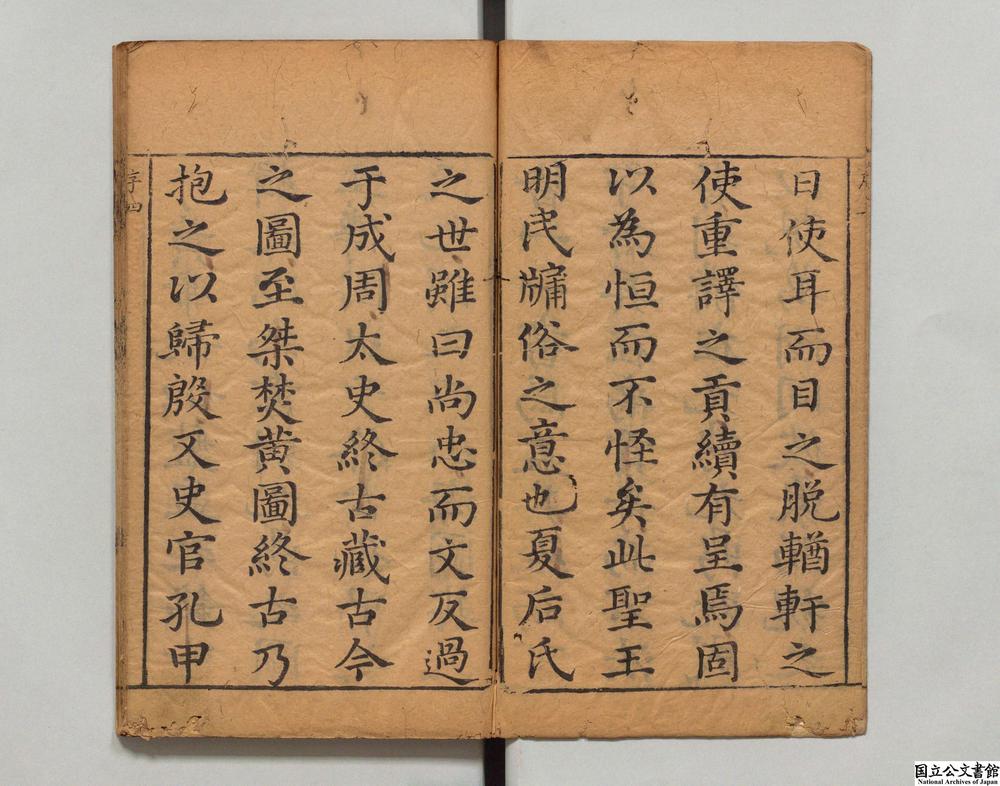 日使耳而目之脱輶軒之
使重譯之貢續有呈焉固
以為恒而不怪矣此聖王
明民牖俗之意也夏后氏
之世雖曰尚忠而文反過
于成周太史終古藏古今
之圖至桀焚黄圖終古乃
抱之以歸殷又史官孔甲
序四
国立公文書館
National Archives of Japan